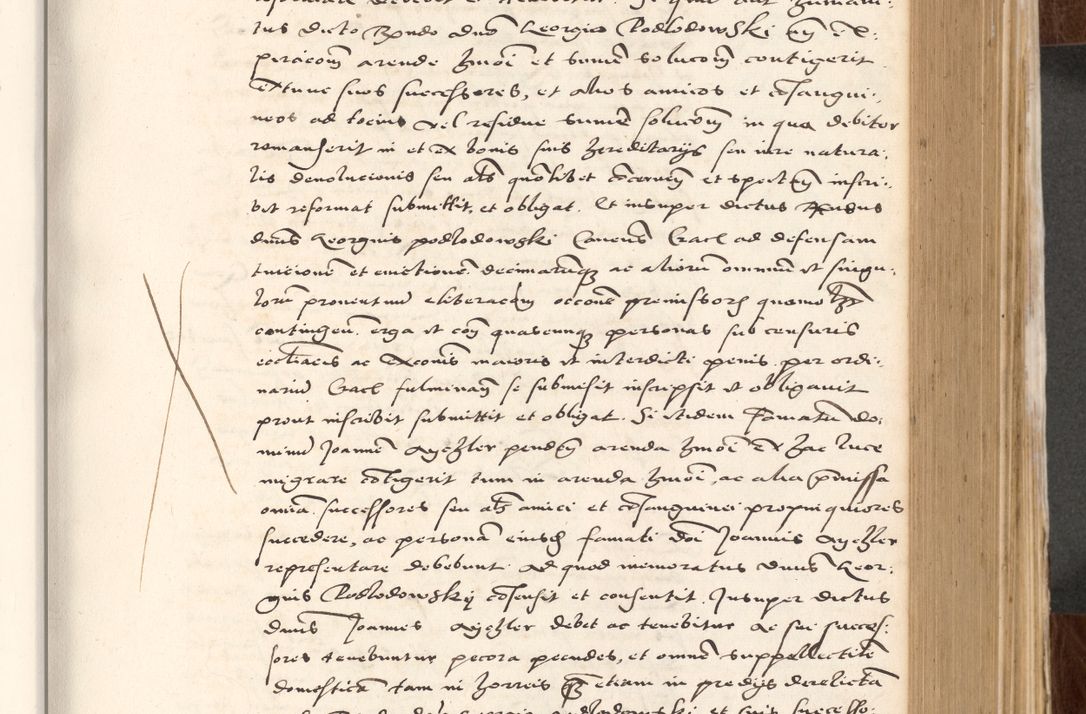 tus dicto Rndo dno Georgio Podlodowski
piracom arende hmoi et summe solucom contigerit
extunc suos successores, et alios amicos et cosangui:
neos ad tocius vel residue summe solucom in qua debitor
romanserit in et ex bonis suis hereditarys seu iure natura:
lis devolucionis seu als quolibet concernen et spectan inscri:
bit reformat submittit, et obligat. Et insuper dictus Rndus
dnus Georgius podlodowski Canonus Crac ad defensam
tuicionem et evictionem decimarumq ac aliorum omnium et singu:
lorum proventuum occone premissorum quomolibet
contingen. erga et con quascunq personas sub censuris
eccliacis ac exconis maioris et interdicti penis, per ordi:
narium Crac fulminan se submisit inscripsit et obligavit
prout inscribit submittit et obligat. Si itidem famatum do:
minum Joannem Aychler penden arenda hmoi ex hac luce
migrare cotigerit tum in arenda hmoi, ac alia pmissa
omnia. successores seu als amici et cosanguinei propinquiores
succedere, ac personam eiusdem famati doi Joannis Aychler
representare debebunt. Ad quod memoratus dnus Geor:
gius Podlodowsky cosensit et consentit. Insuper dictus
dnus Joannes Aychler debet ac tenebitur Ac sui succes:
sores tenebuntur pecora pecudes, et omnem suppellectilem
domesticam tam in horreis etiam in predys derelictam